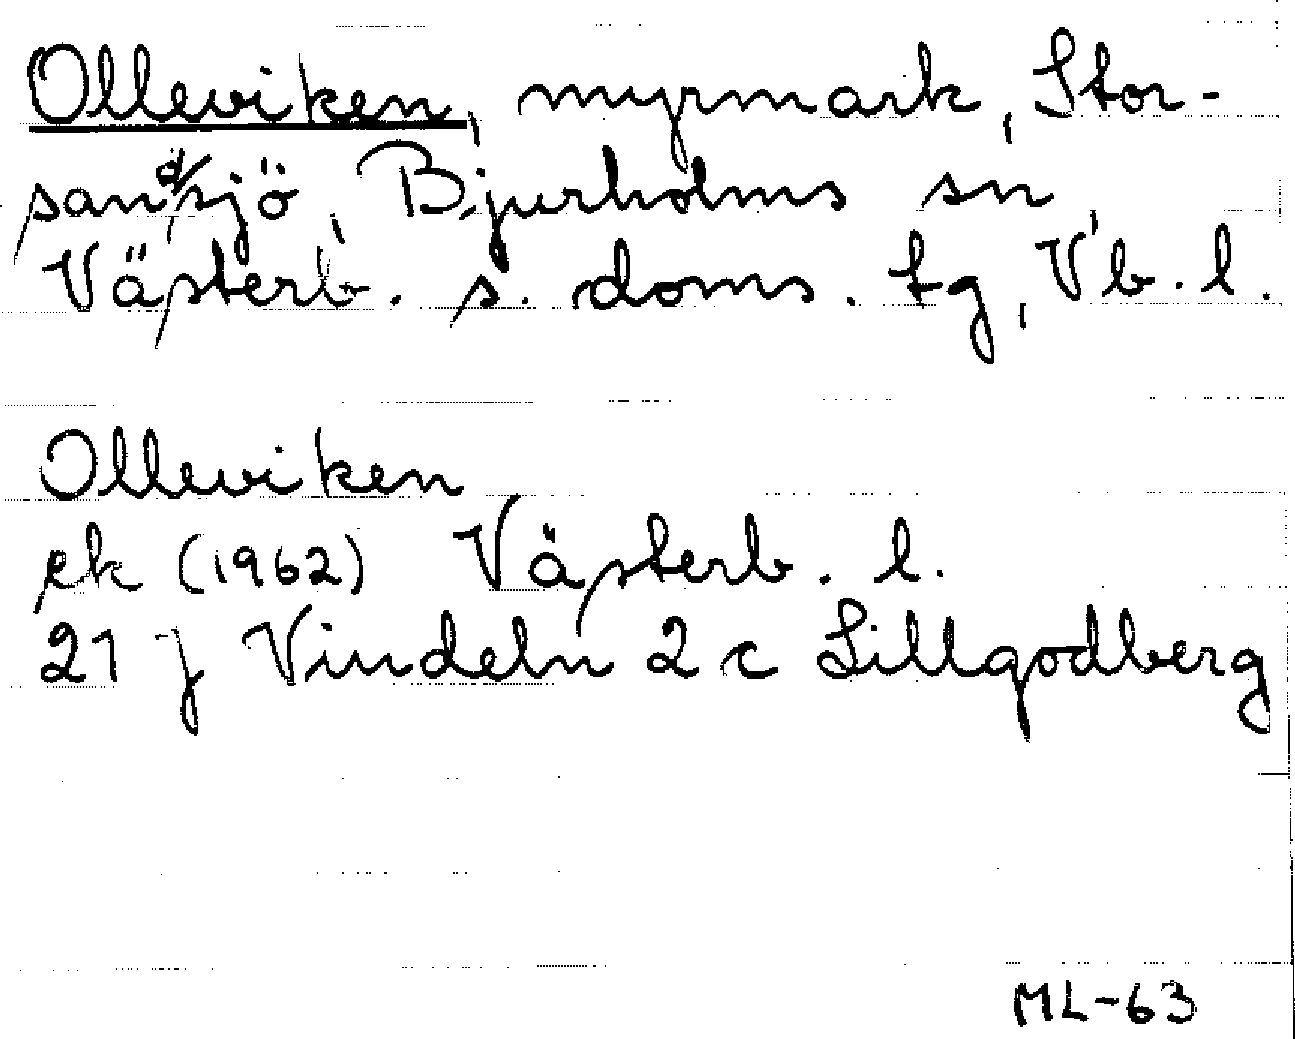 Olleviken, myrmark, Stor-
sandsjö, Bjurholms sn,
Västerb. s. doms. tg, Vb. l.
Olleviken
ek (1962) Västerb. l.
21 j Vindeln 2 c Lillgodberg
ML-63